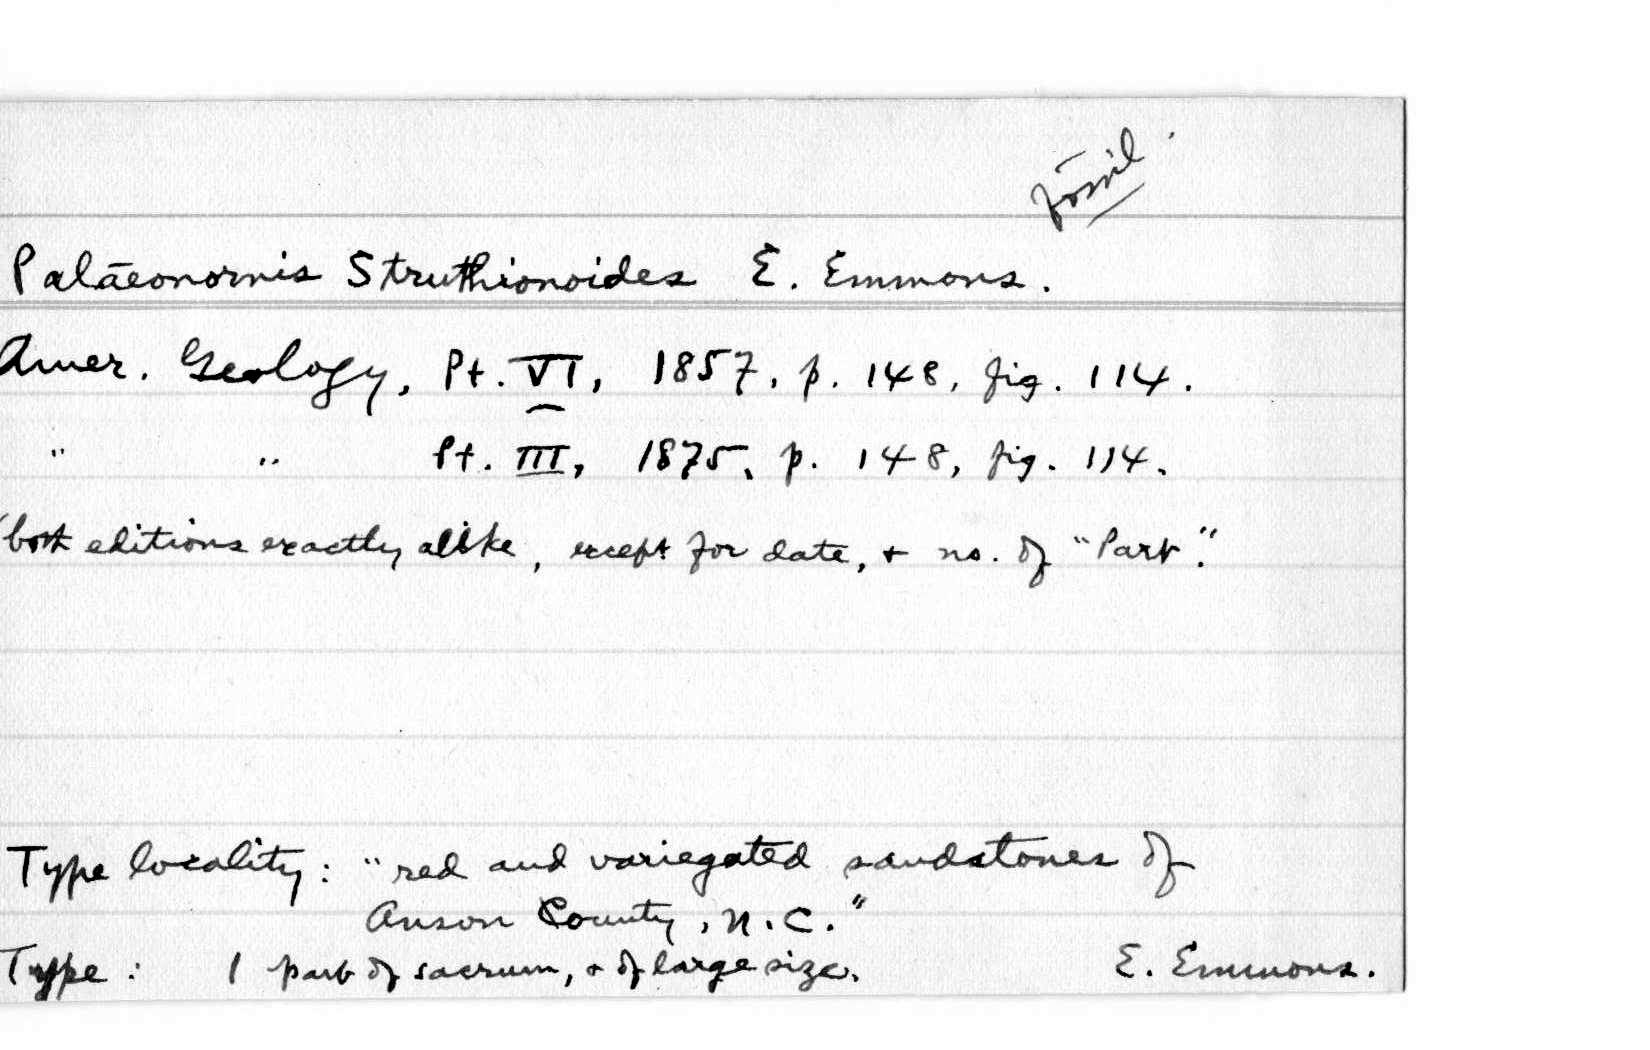 fossil.
Palaeonornis Struthionoides E. Emmons.
Amer. Geology, Pt. VI, 1857, p. 148, fig. 114.
" " Pt. III, 1875, p. 148, fig. 114.
(both editions exactly alike, except for date, + no. of "Part".
Type locality: "red and variegated sandstones of
Anson County, N.C."
Type: 1 part of sacrum, + of large size. E. Emmons.